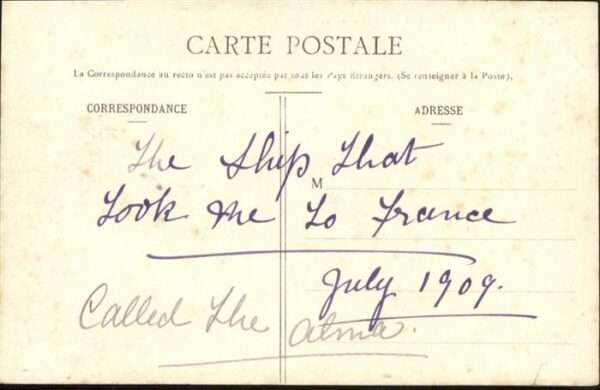 CARTE POSTALE
La Correspondance au recto n'est pas acceptée par tous les Pays étrangers. (Se renseigner à la Poste).
CORRESPONDANCE
ADRESSE
The Ship that
M
Took me to France
July 1909.
Called the Alma.